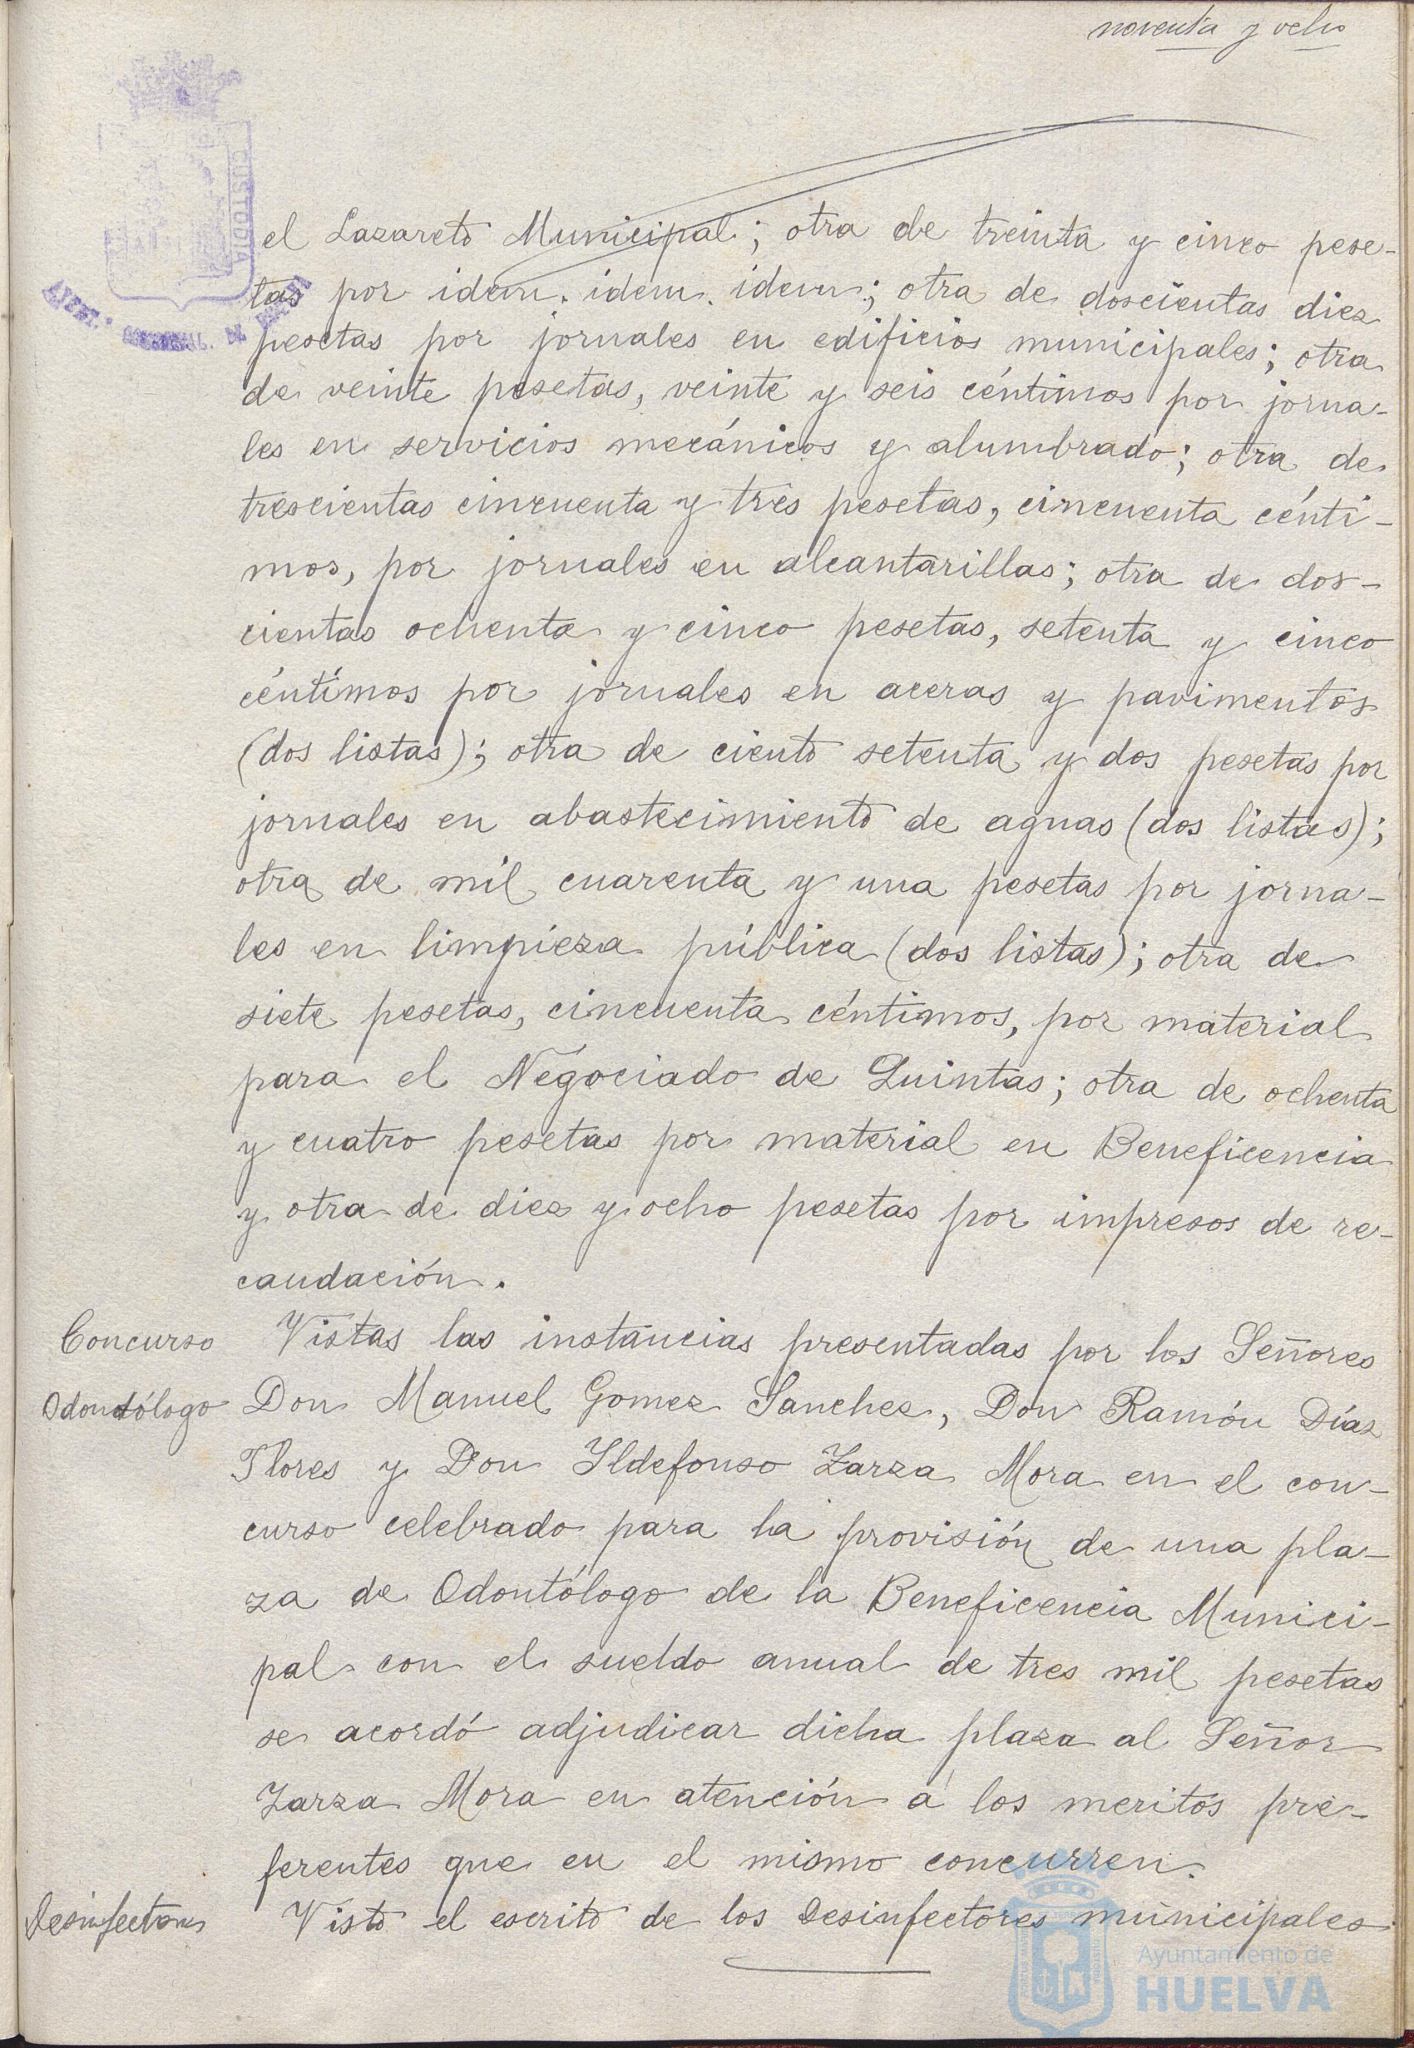 noventa y ocho
CUSTODIA
el Lazareto Municipal; otra de treinta y cinco pese-
tas por idem. idem. idem; otra de doscientas diez
pesetas por jornales en edificios municipales; otra
de veinte pesetas, veinte y seis céntimos por jorna-
les en servicios mecánicos y alumbrado; otra de
trescientas cincuenta y tres pesetas, cincuenta cénti-
mos, por jornales en alcantarillas; otra de dos-
cientas ochenta y cinco pesetas, setenta y cinco
céntimos por jornales en aceras y pavimentos
(dos listas); otra de ciento setenta y dos pesetas por
jornales en abastecimiento de aguas (dos listas);
otra de mil cuarenta y una pesetas por jorna-
les en limpieza pública (dos listas); otra de
siete pesetas, cincuenta céntimos, por material
para el Negociado de Quintas; otra de ochenta
y cuatro pesetas por material en Beneficencia
y otra de diez y ocho pesetas por impresos de re-
caudación.
Concurso Vistas las instancias presentadas por los Señores
Odontólogo Don Manuel Gomez Sanchez, Don Ramón Díaz
Flores y Don Ildefonso Zarza Mora en el con-
curso celebrado para la provisión de una pla-
za de Odontólogo de la Beneficencia Munici-
pal con el sueldo anual de tres mil pesetas
se acordó adjudicar dicha plaza al Señor
Zarza Mora en atención á los meritos pre-
ferentes que en el mismo concurren.
Desinfectores Visto el escrito de los Desinfectores municipales
Ayuntamiento de
HUELVA